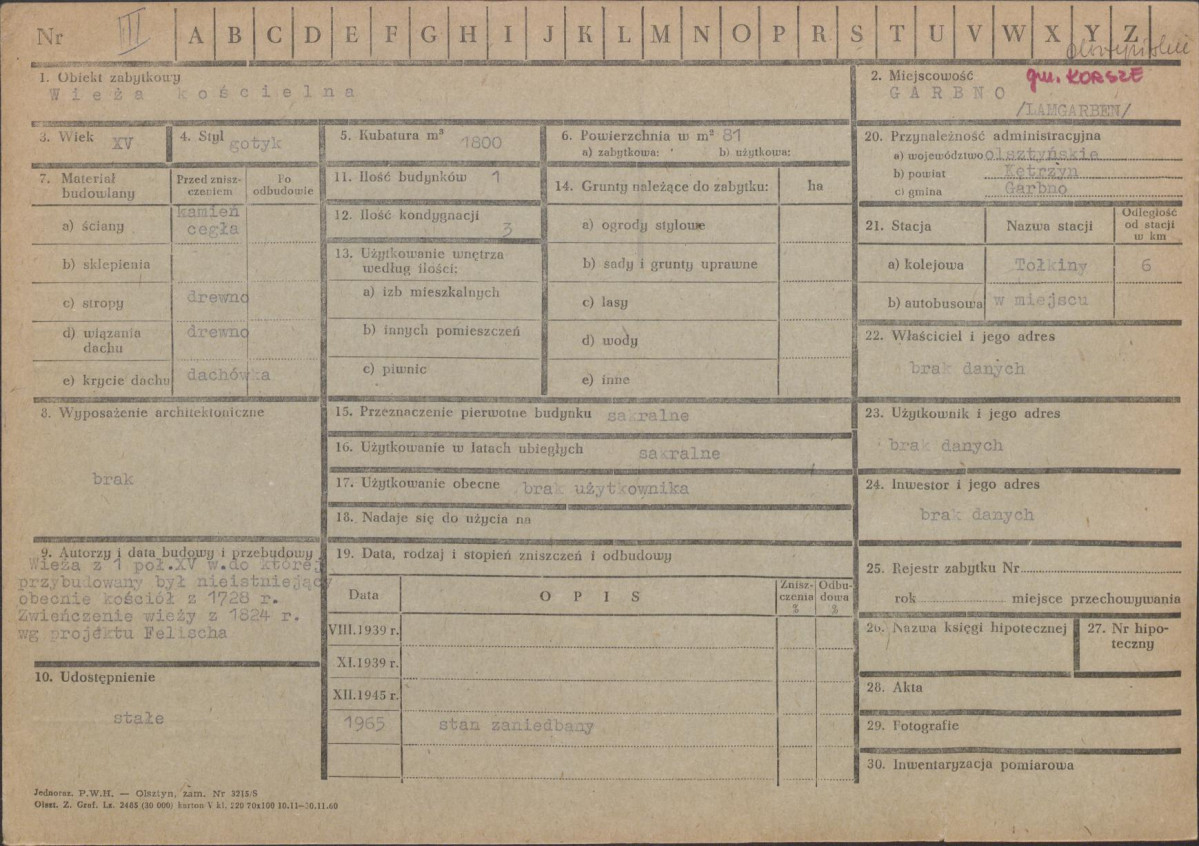 Nr III A B C D E F G H I J K L M N O P R S T U V W X Y Z
1. Obiekt zabytkowy
Wieża kościelna
2. Miejscowość gm. KORSZE
GARBNO
/LAMGARBEN/
3. Wiek XV
4. Styl gotyk
5. Kubatura m³ 1800
6. Powierzchnia w m² 81
a) zabytkowa: b) użytkowa:
7. Materiał budowlany
Przed zniszczeniem
Po odbudowie
a) ściany kamień
cegła
b) sklepienia
c) stropy drewno
d) wiązania dachu drewno
e) krycie dachu dachówka
8. Wyposażenie architektoniczne
brak
9. Autorzy i data budowy i przebudowy
Wieża z 1 poł.XV w.do której
przybudowany był nieistniejący
obecnie kościół z 1728 r.
Zwieńczenie wieży z 1824 r.
wg projektu Felischa
10. Udostępnienie
stałe
11. Ilość budynków 1
12. Ilość kondygnacji 3
13. Użytkowanie wnętrza
według ilości:
a) izb mieszkalnych
b) innych pomieszczeń
c) piwnic
14. Grunty należące do zabytku: ha
a) ogrody stylowe
b) sady i grunty uprawne
c) lasy
d) wody
e) inne
15. Przeznaczenie pierwotne budynku sakralne
16. Użytkowanie w latach ubiegłych sakralne
17. Użytkowanie obecne brak użytkownika
18. Nadaje się do użycia na
19. Data, rodzaj i stopień zniszczeń i odbudowy
Data OPIS Zniszczenia % Odbudowa %
VIII.1939 r.
XI.1939 r.
XII.1945 r.
1965 stan zaniedbany
20. Przynależność administracyjna
a) województwo olsztyńskie
b) powiat Kętrzyn
c) gmina Garbno
21. Stacja Nazwa stacji Odległość od stacji w km
a) kolejowa Tołkiny 6
b) autobusowa w miejscu
22. Właściciel i jego adres
brak danych
23. Użytkownik i jego adres
brak danych
24. Inwestor i jego adres
brak danych
25. Rejestr zabytku Nr
rok miejsce przechowywania
26. Nazwa księgi hipotecznej
27. Nr hipoteczny
28. Akta
29. Fotografie
30. Inwentaryzacja pomiarowa
Jednoraz. P.W.H. — Olsztyn, zam. Nr 3215/S
Olszt. Z. Graf. Lz. 2465 (30 000) karton V kl. 220 70x100 10.11—30.11.60